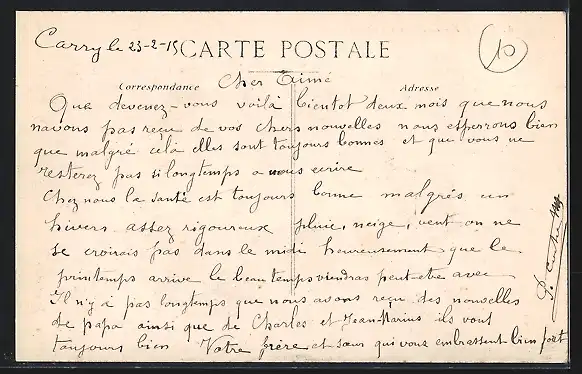 Carry le 23-2-15
CARTE POSTALE
10
Correspondance
Adresse
Cher Aimé
Que devenez-vous voilà bientot deux mois que nous
navons pas reçu de vos chers nouvelles nous esperrons bien
que malgré celà elles sont toujours bonnes et que vous ne
resterez pas si longtemps a nous ecrire
Chez nous la santé est toujours bonne malgrés un
hivers assez rigoureux pluie, neige, vent on ne
se croirais pas dans le midi heureusement que le
printemps arrive le beau temps viendras peut-etre avec
Il n'y à pas longtemps que nous avons reçu des nouvelles
de papa ainsi que de Charles et Jean-Marius ils vont
toujours bien Votre frère et sœur qui vous embrassent bien fort